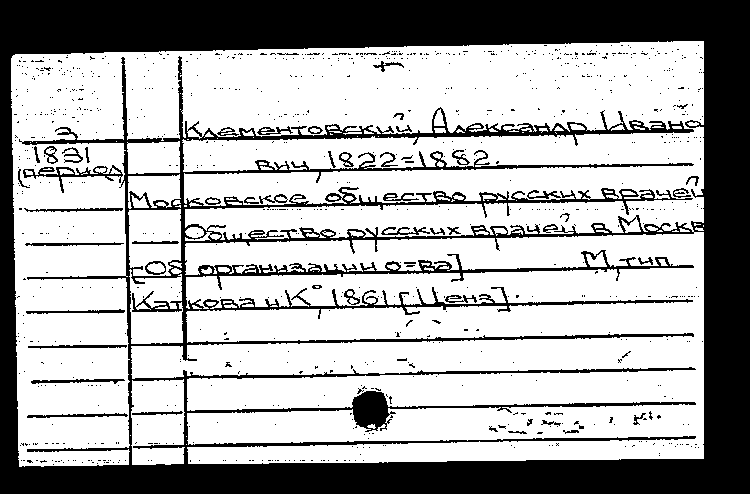 3
1831
(период)
Клементовский, Александр Ивано
вич, 1822=1882.
Московское общество русских врачей
Общество русских врачей в Москв
[Об организации о=ва] М, тип
Каткова и К°, 1861 [Ценз].